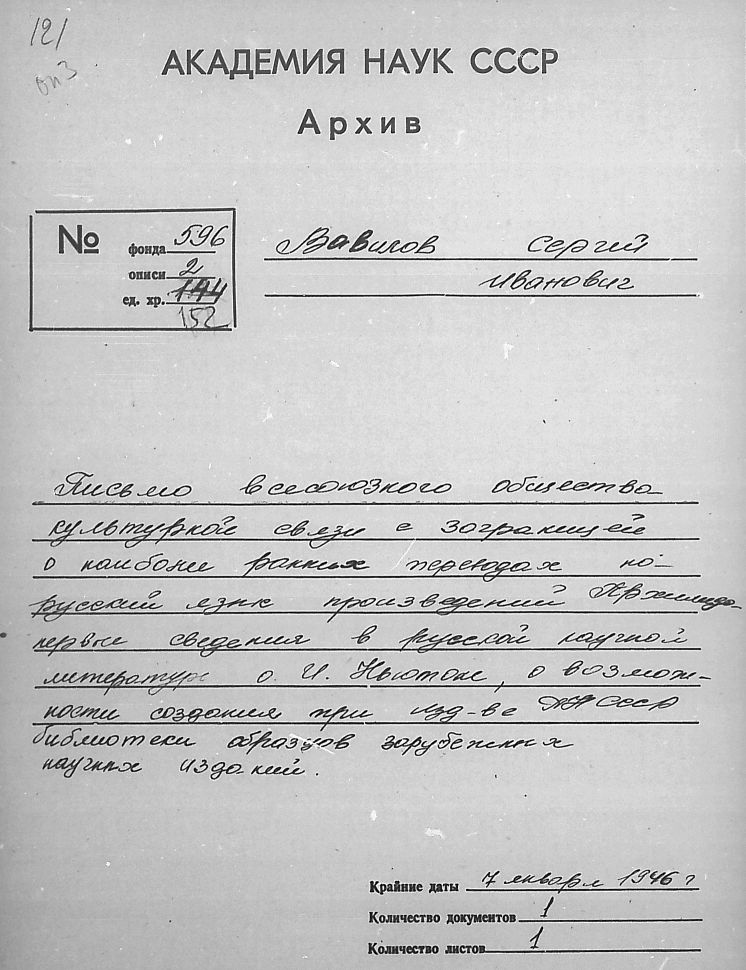 121
оп3
АКАДЕМИЯ НАУК СССР
Архив
№
фонда 596
описи 2
ед. хр. 144
152
Вавилов Сергей
Иванович
Письмо всесоюзного общества
культурной связи с заграницей
о наиболее ранних переводах на
русский язык произведений Архимеда
первые сведения в русской научной
литературе о И. Ньютоне, о возмож-
ности создания при изд-ве АН СССР
библиотеки образцов зарубежных
научных изданий.
Крайние даты 7 января 1946 г
Количество документов 1
Количество листов 1